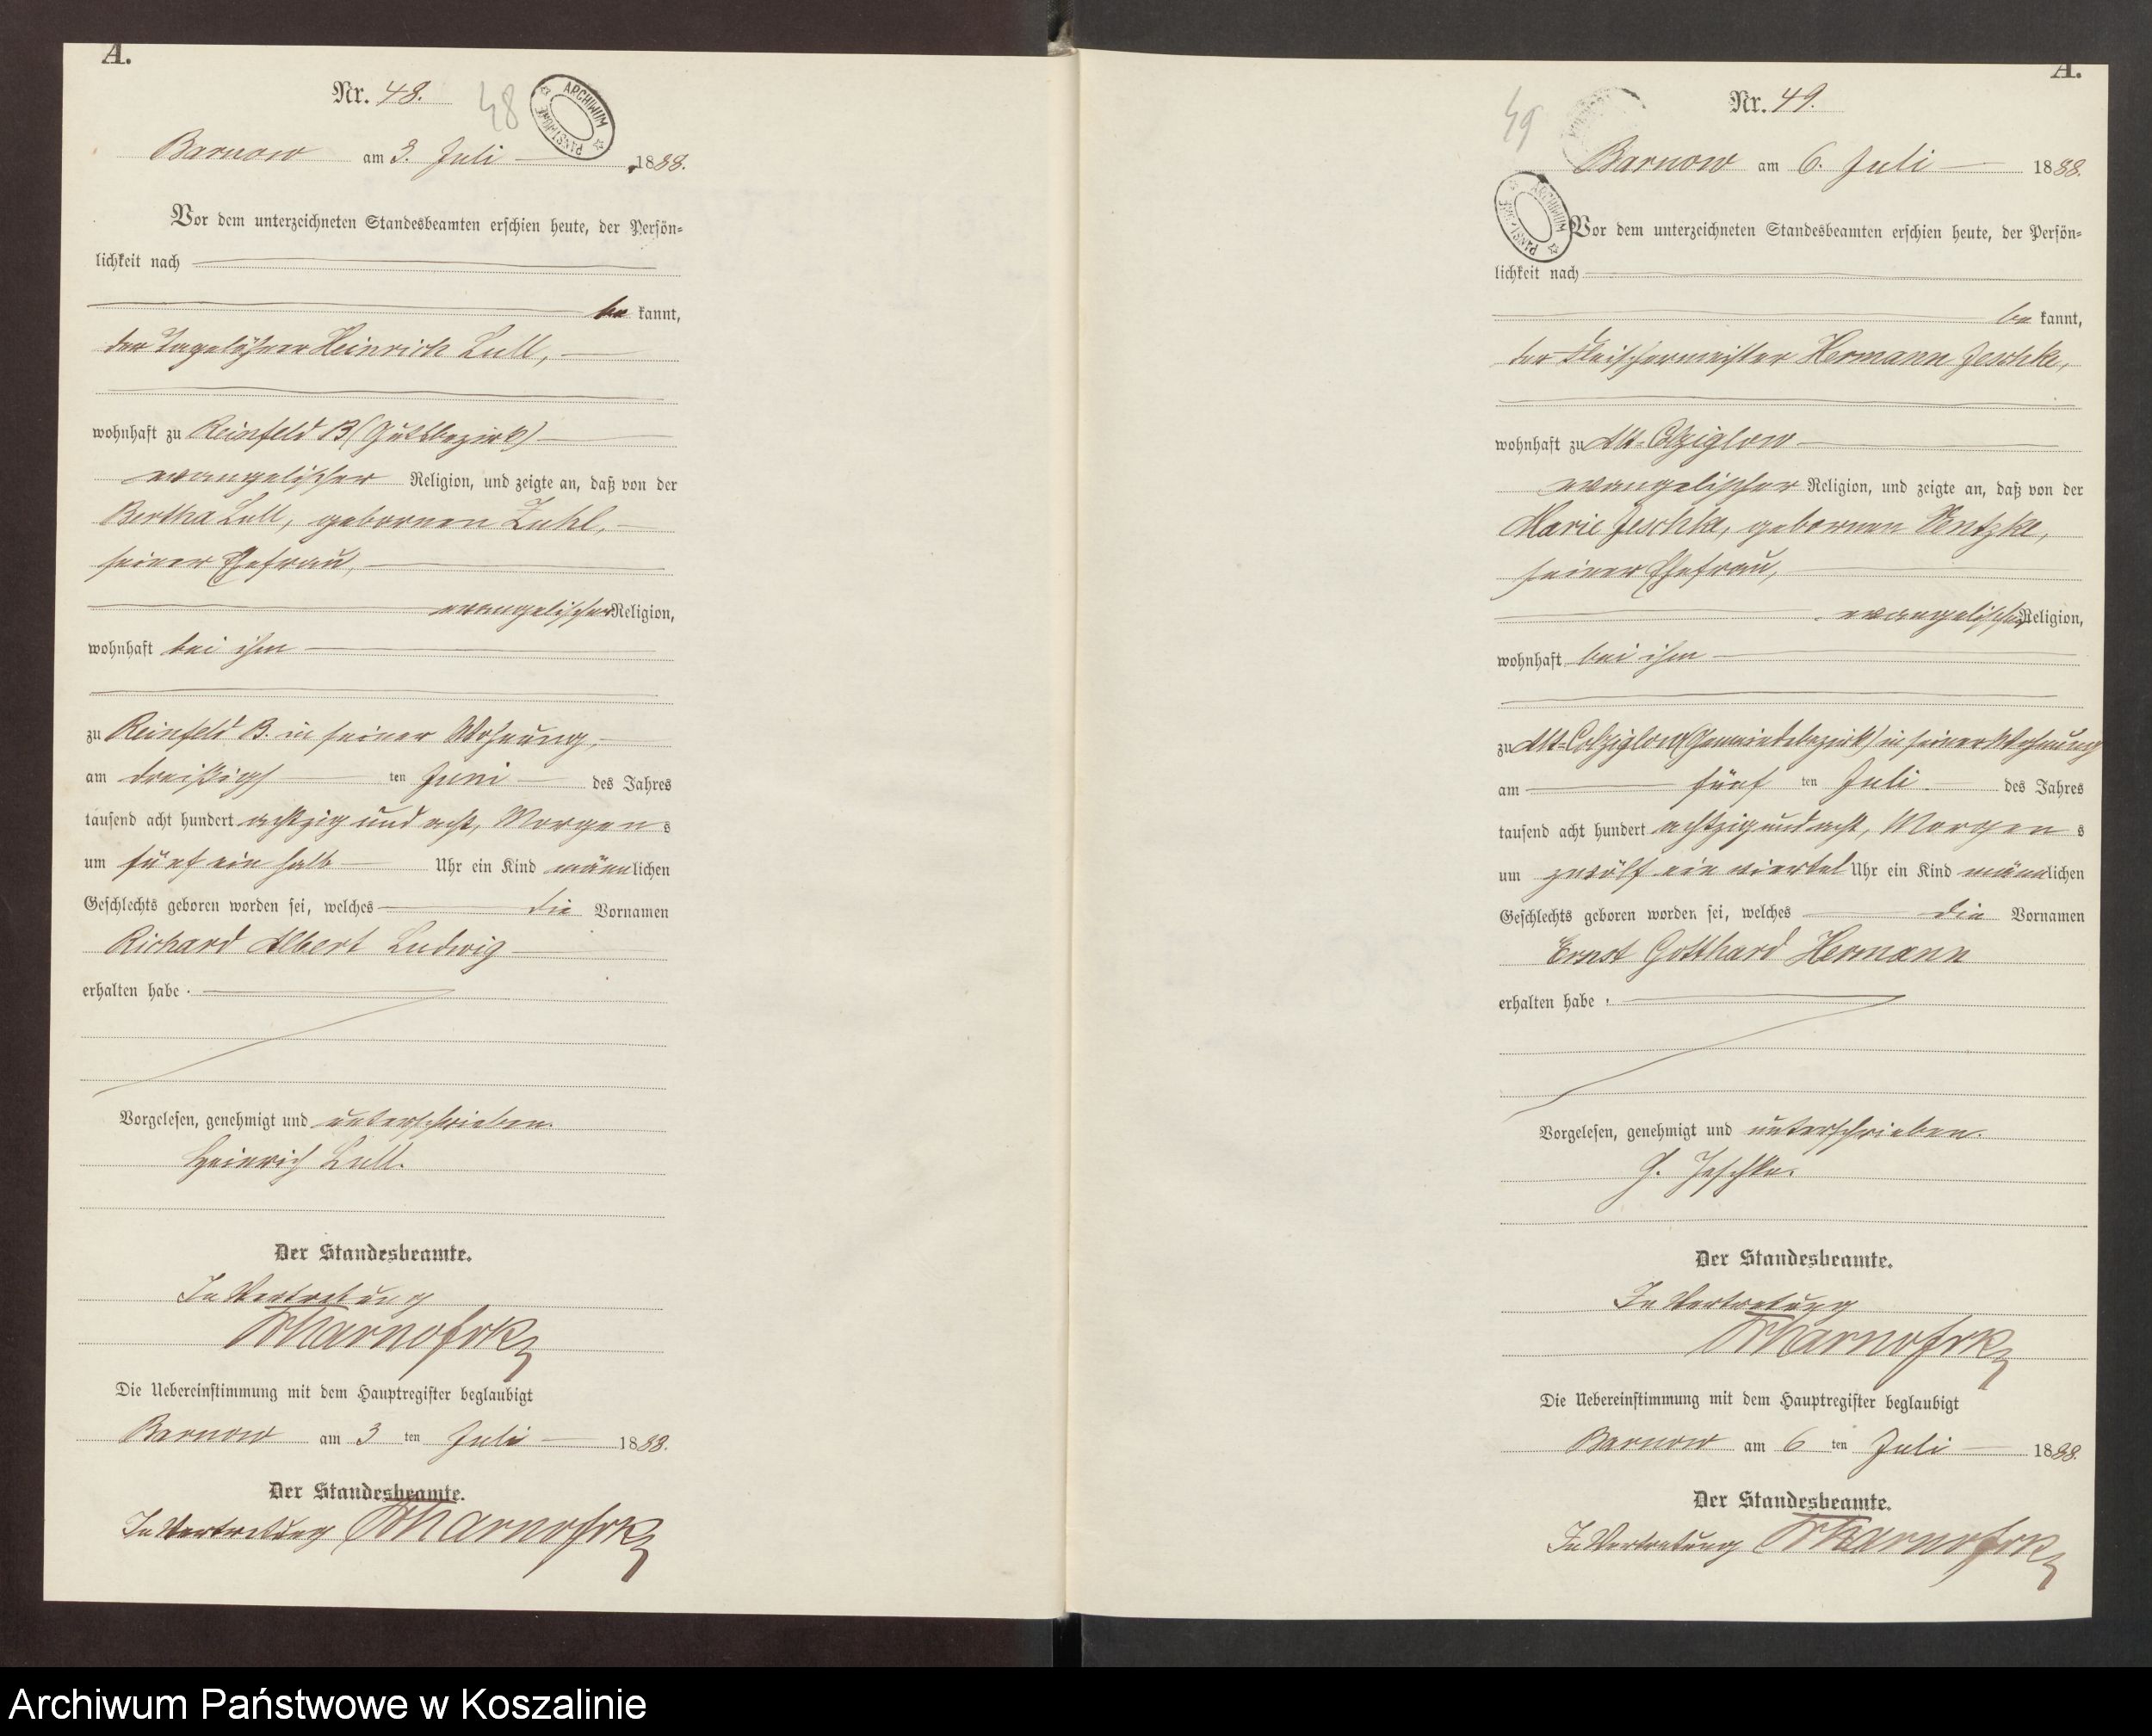 A.
Nr. 48.
48
ARCHIWUM PAŃSTWOWE
Barnow am 3. Juli 1888.
Vor dem unterzeichneten Standesbeamten erschien heute, der Persön=
lichkeit nach
be kannt,
der Tagelöhner Heinrich Lull,
wohnhaft zu Reinfeld B (Gutsbezirk)
evangelischer Religion, und zeigte an, daß von der
Bertha Lull, gebornen Zuhl,
seiner Ehefrau,
evangelischer Religion,
wohnhaft bei ihm
zu Reinfeld B. in seiner Wohnung,
am dreißigs ten Juni des Jahres
tausend acht hundert achtzig und acht, Morgens
um fünf ein halb Uhr ein Kind männlichen
Geschlechts geboren worden sei, welches die Vornamen
Richard Albert Ludwig
erhalten habe.
Vorgelesen, genehmigt und unterschrieben.
Heinrich Lull.
Der Standesbeamte.
In Vertretung
Die Uebereinstimmung mit dem Hauptregister beglaubigt
Barnow am 3 ten Juli 1888.
Der Standesbeamte.
In Vertretung
A.
Nr. 49.
49
Barnow am 6. Juli 1888.
Vor dem unterzeichneten Standesbeamten erschien heute, der Persön=
lichkeit nach
be kannt,
der Fleischermeister Hermann Jeschke,
wohnhaft zu Alt-Colziglow
evangelischer Religion, und zeigte an, daß von der
Marie Jeschke, gebornen Ventzke,
seiner Ehefrau,
evangelischer Religion,
wohnhaft bei ihm
zu Alt-Colziglow (Gemeindebezirk) in seiner Wohnung
am fünf ten Juli des Jahres
tausend acht hundert achtzig und acht, Morgens
um zwölf ein viertel Uhr ein Kind männlichen
Geschlechts geboren worden sei, welches die Vornamen
Ernst Gotthard Hermann
erhalten habe.
Vorgelesen, genehmigt und unterschrieben.
H. Jeschke.
Der Standesbeamte.
In Vertretung
Die Uebereinstimmung mit dem Hauptregister beglaubigt
Barnow am 6 ten Juli 1888.
Der Standesbeamte.
In Vertretung
Archiwum Państwowe w Koszalinie